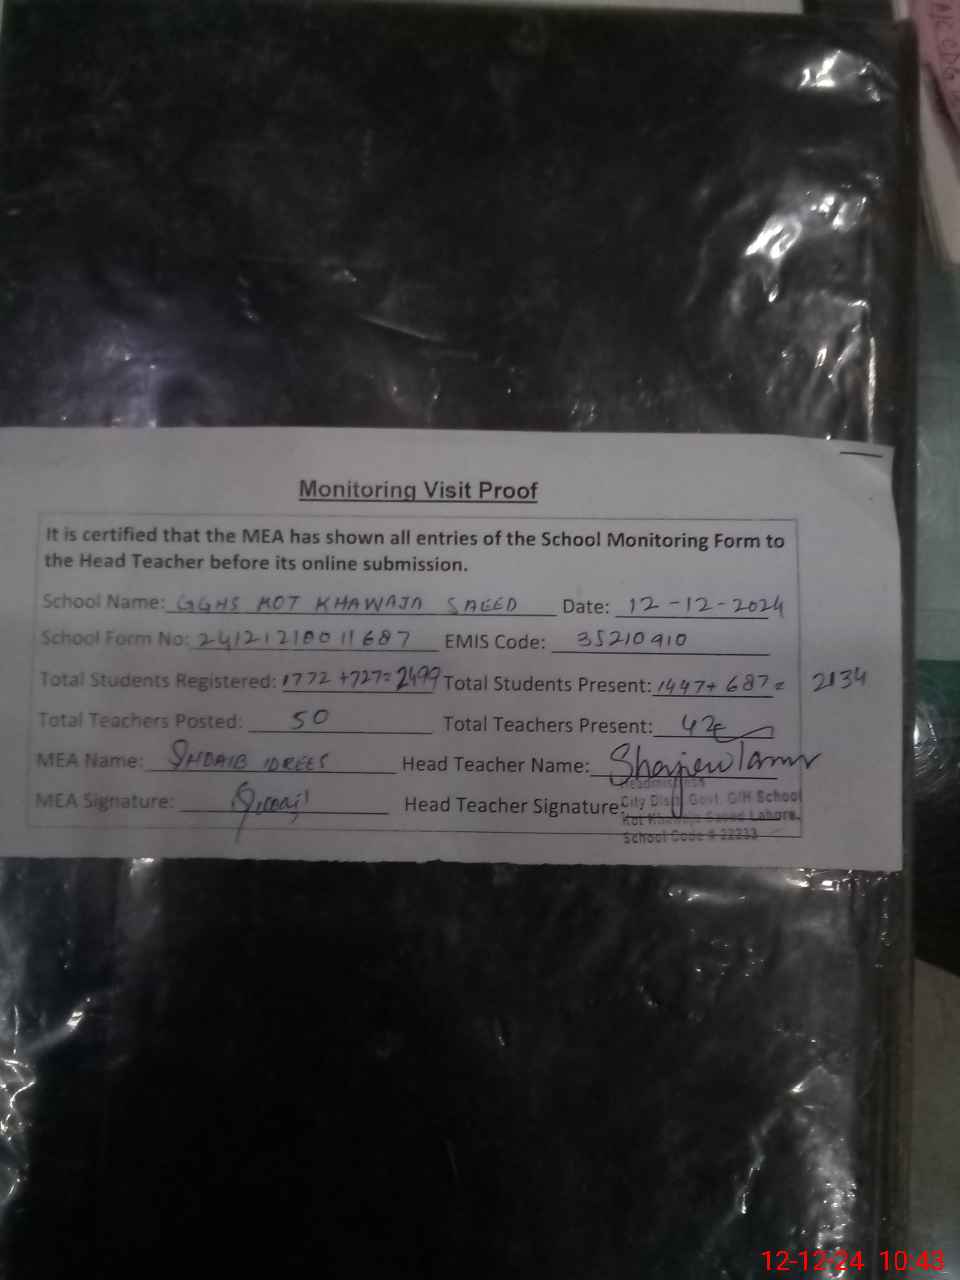 Monitoring Visit Proof
It is certified that the MEA has shown all entries of the School Monitoring Form to
the Head Teacher before its online submission.
School Name: GGHS KOT KHAWAJA SAEED Date: 12-12-2024
School Form No: 241212180011687 EMIS Code: 35210910
Total Students Registered: 1772 +727=2499 Total Students Present: 1447+ 687= 2134
Total Teachers Posted: 50 Total Teachers Present: 42
MEA Name: SHOAIB IDREES Head Teacher Name:
MEA Signature: Head Teacher Signature:
Headmistress
City Distt. Govt. G/H School
Kot Khawaja Saeed Lahore.
School Code # 22233
12-12-24 10:43